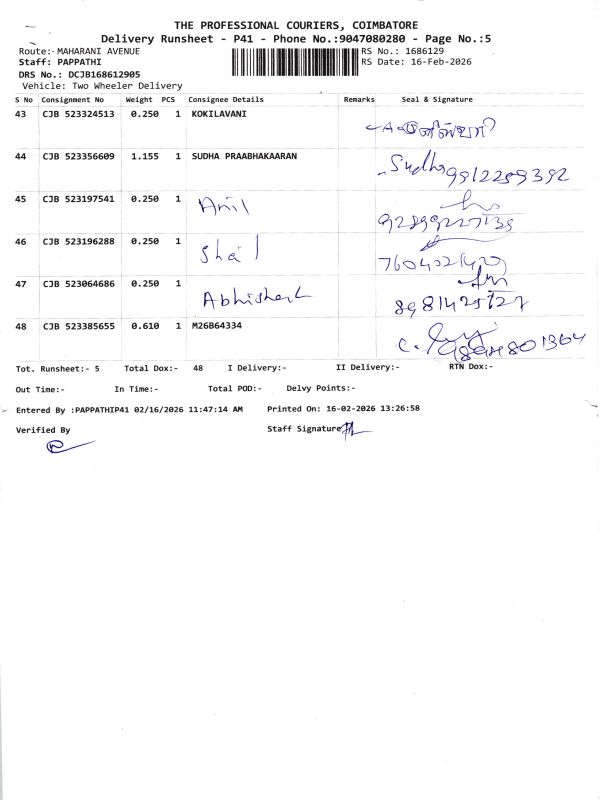 THE PROFESSIONAL COURIERS, COIMBATORE
Delivery Runsheet - P41 - Phone No.:9047080280 - Page No.:5
Route:- MAHARANI AVENUE RS No.: 1686129
Staff: PAPPATHI RS Date: 16-Feb-2026
DRS No.: DCJB168612905
Vehicle: Two Wheeler Delivery
S No Consignment No Weight PCS Consignee Details Remarks Seal & Signature
43 CJB 523324513 0.250 1 KOKILAVANI
44 CJB 523356609 1.155 1 SUDHA PRAABHAKAARAN Sudha 9912289392
45 CJB 523197541 0.250 1 Anil
46 CJB 523196288 0.250 1
47 CJB 523064686 0.250 1 Abhishek
48 CJB 523385655 0.610 1 M26B64334
Tot. Runsheet:- 5 Total Dox:- 48 I Delivery:- II Delivery:- RTN Dox:-
Out Time:- In Time:- Total POD:- Delvy Points:-
Entered By :PAPPATHIP41 02/16/2026 11:47:14 AM Printed On: 16-02-2026 13:26:58
Verified By Staff Signature